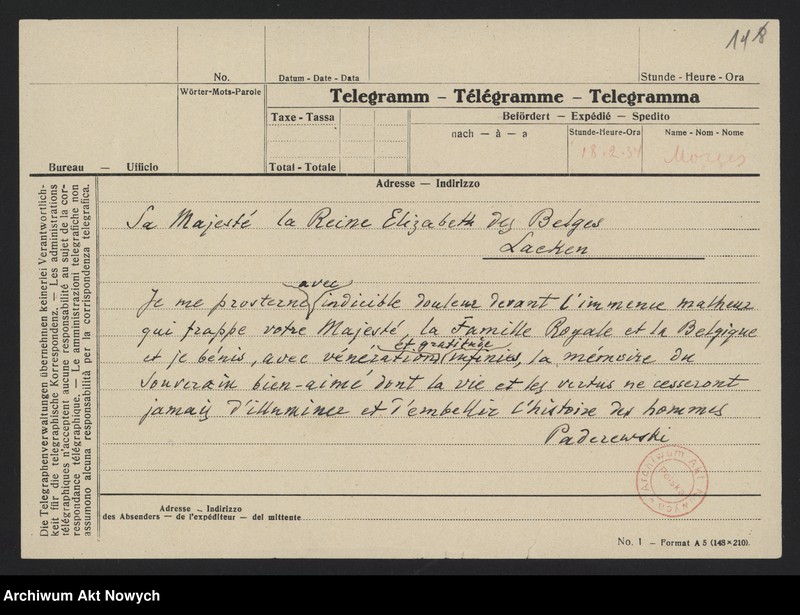 148
No.
Datum - Date - Data
Stunde - Heure - Ora
Wörter-Mots-Parole
Telegramm – Télégramme – Telegramma
Taxe - Tassa
Befördert – Expédié – Spedito
nach – à – a
Stunde-Heure-Ora
Name - Nom - Nome
18.2.34
Morges
Total - Totale
Bureau – Ufficio
Adresse — Indirizzo
Die Telegraphenverwaltungen übernehmen keinerlei Verantwortlich-
keit für die telegraphische Korrespondenz. — Les administrations
télégraphiques n'acceptent aucune responsabilité au sujet de la cor-
respondance télégraphique. — Le amministrazioni telegrafiche non
assumono alcuna responsabilità per la corrispondenza telegrafica.
Sa Majesté la Reine Elizabeth des Belges
Laeken
avec
Je me prosterne indicible douleur devant l'immence malheur
qui frappe votre Majesté, la Famille Royale et la Belgique
et gratitude
et je bénis, avec vénération infinies, la mémoire du
Souverain bien-aimé dont la vie et les vertus ne cesseront
jamais d'illuminer et d'embellir l'histoire des hommes
Paderewski
Archiwum Akt Nowych
Polska
Adresse – Indirizzo
des Absenders – de l'expéditeur – del mittente
No. 1 – Format A 5 (148×210).
Archiwum Akt Nowych